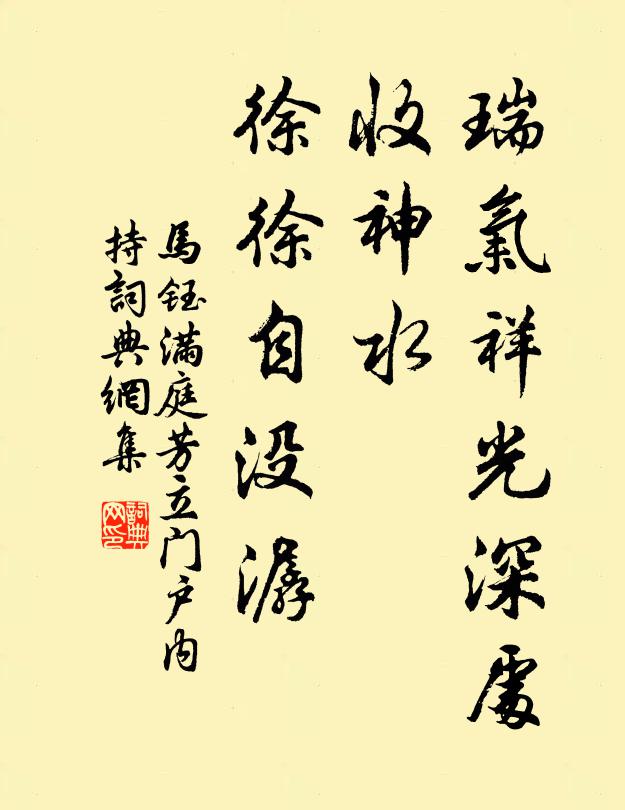 瑞氣祥光深處
收神水
徐徐自沒潺
馬鈺滿庭芳立门户内
持詞典網集
詞典网印